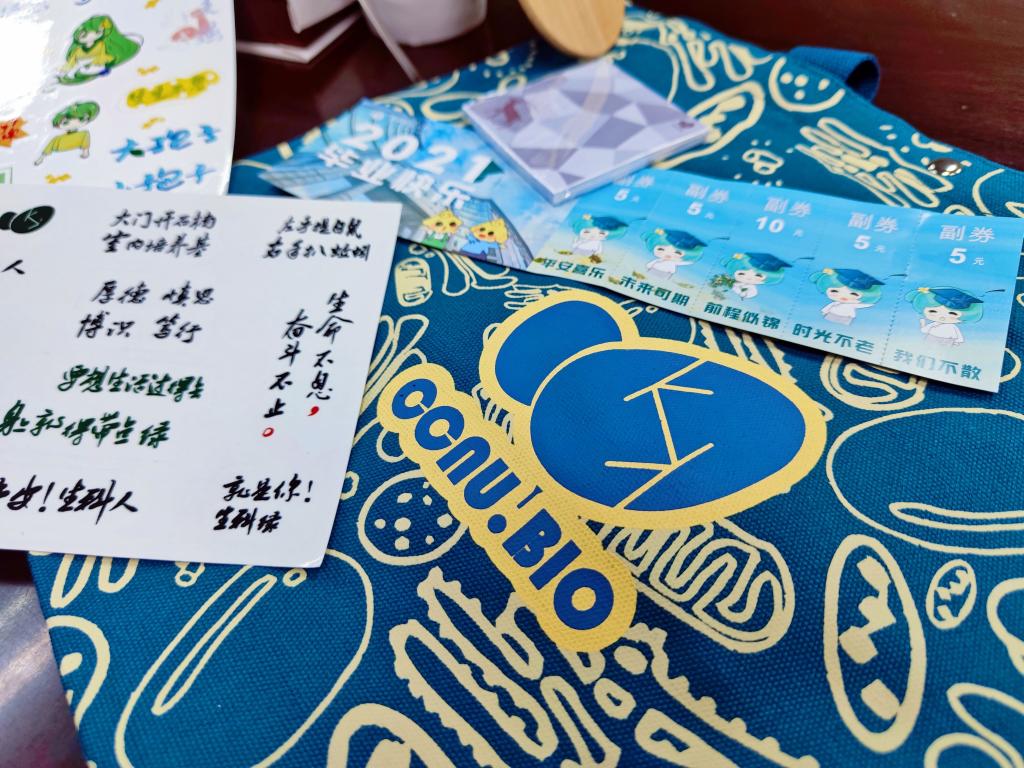 大孢子
小孢子
2021
毕业快乐
副券
5
副券
5
副券
10 元
副券
5 元
副券
5 元
平安喜乐
未来可期
前程似锦
时光不老
我们不散
大门开石楠
室内培养基
左手提白鼠
右手扒蚯蚓
人
厚德 慎思
博识 笃行
生命不息，
奋斗不止。
要想生活过得去
身上就得带点绿
生科人
就是你！
生科绿
CCNU.BIO